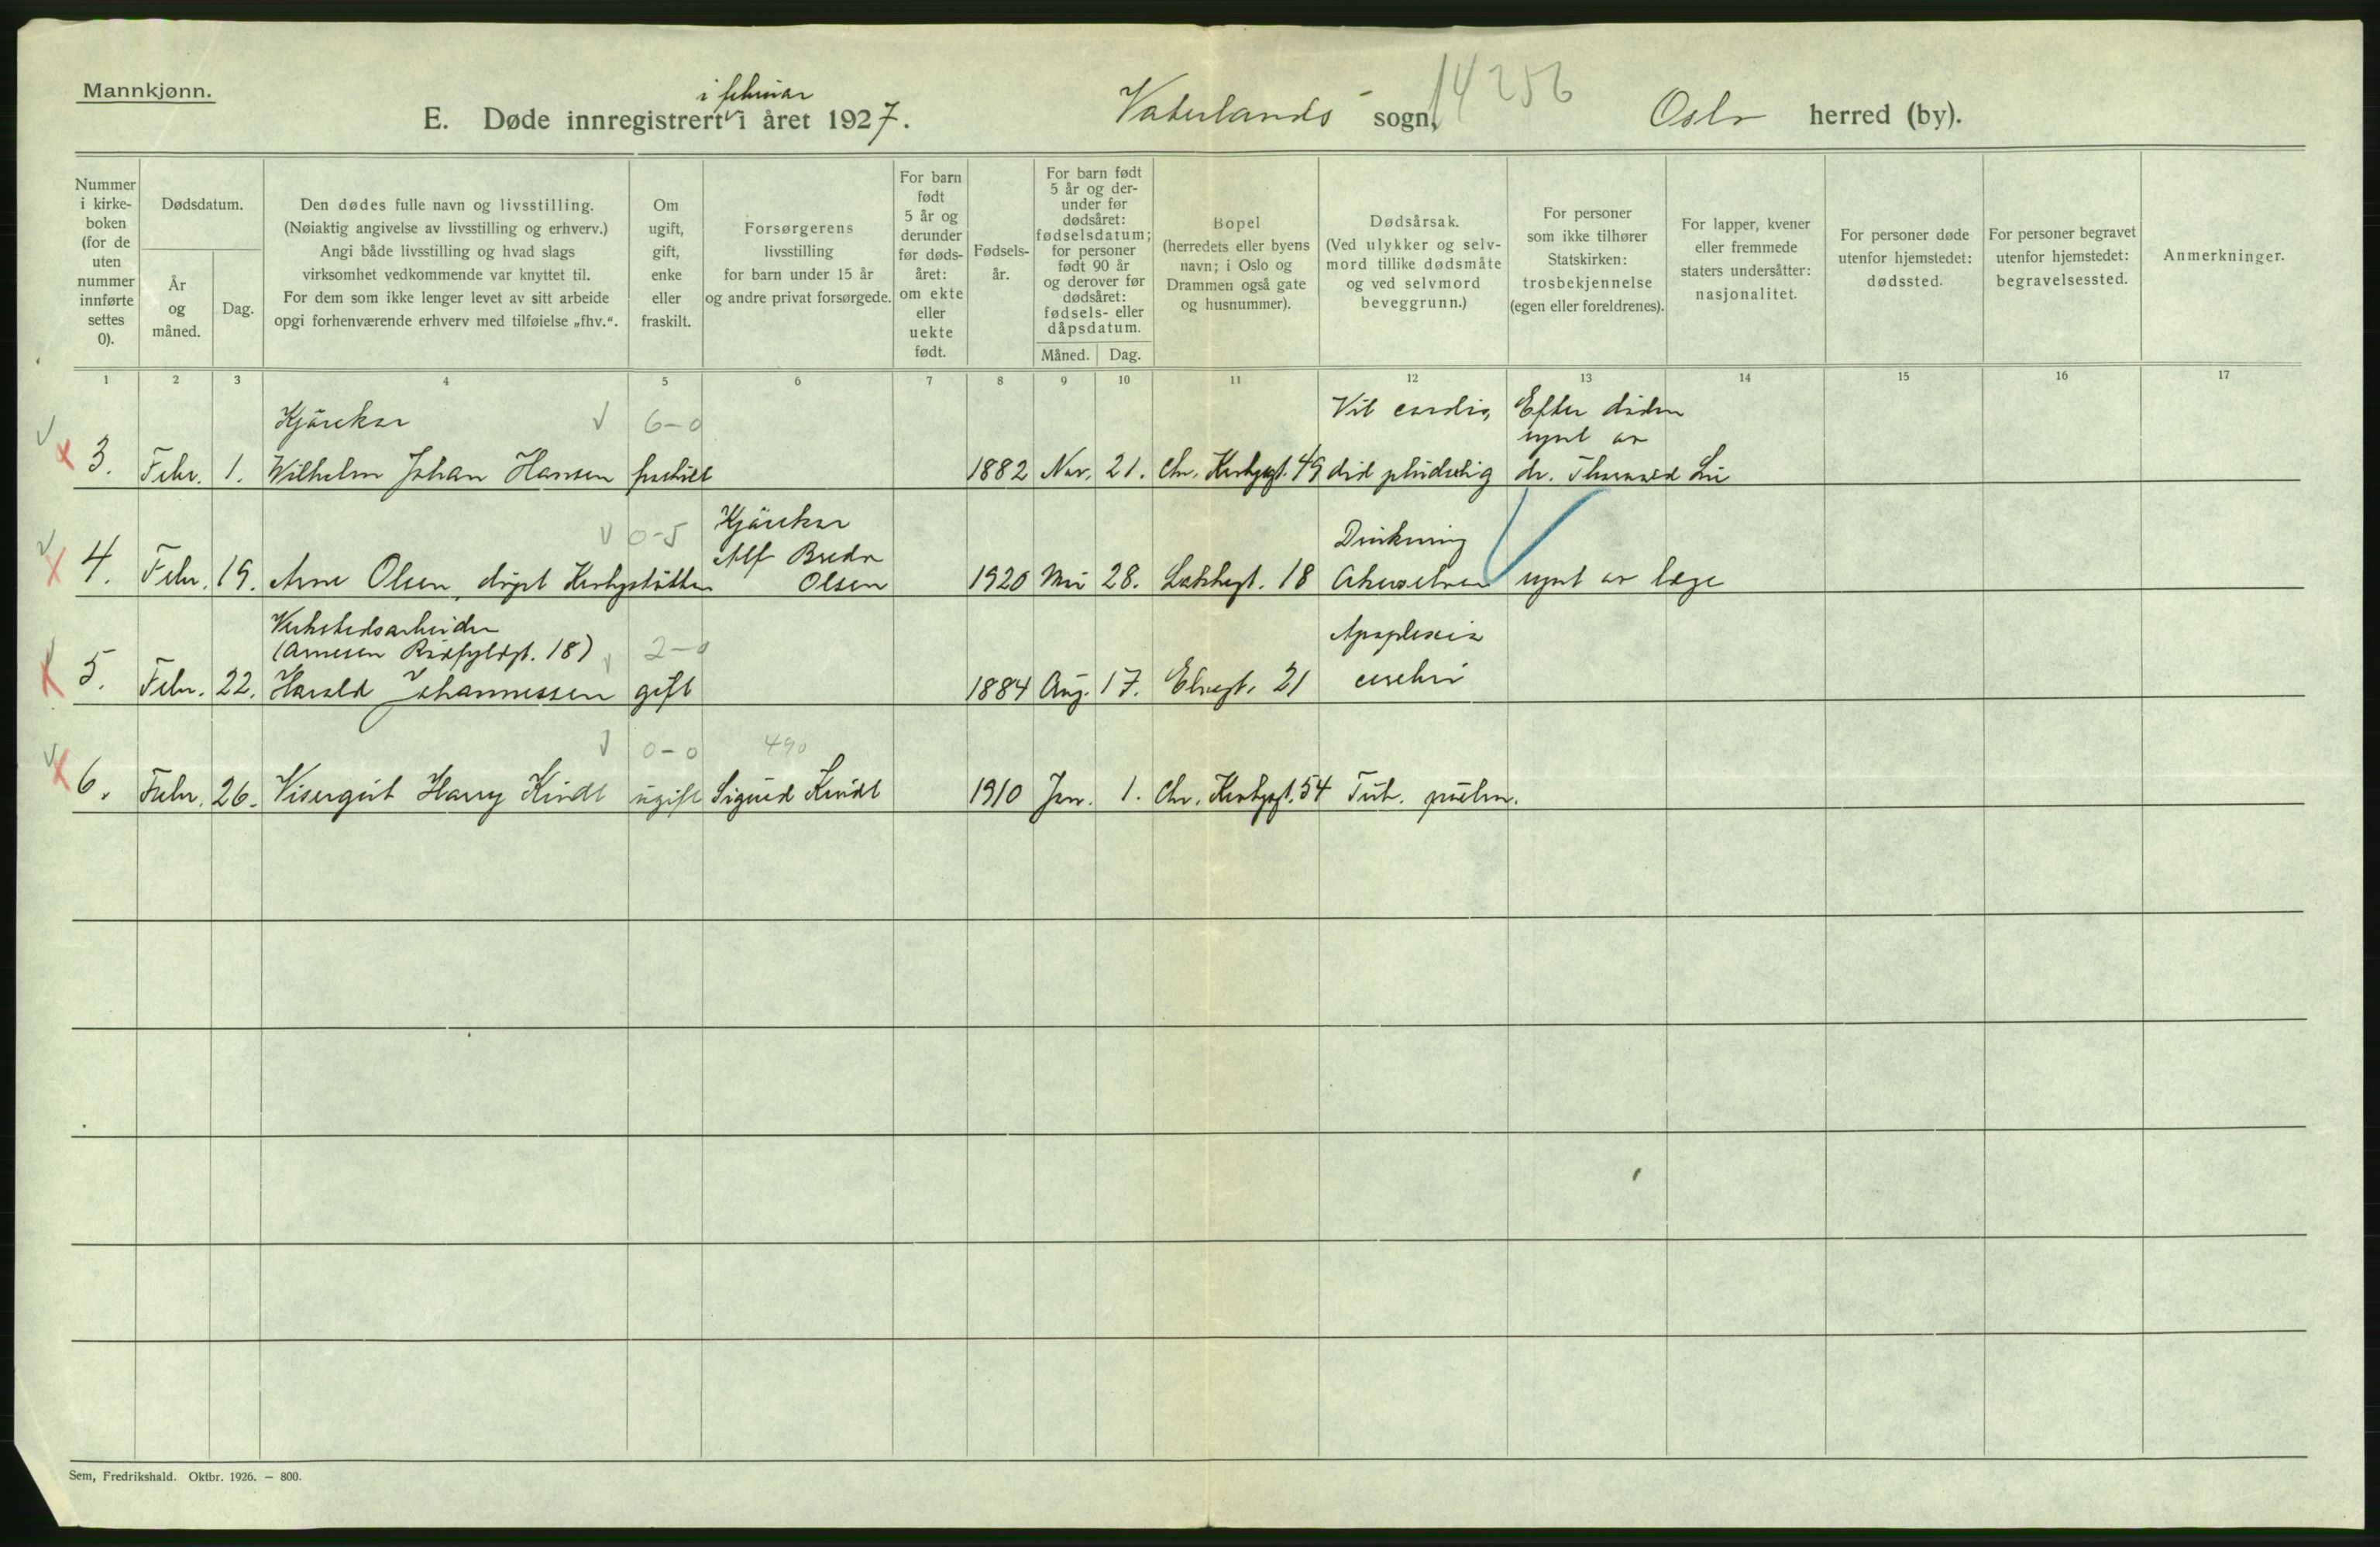 Mannkjønn.
i februar
E. Døde innregistrert i året 1927.
Vaterlands sogn,
14256
Oslo herred (by).
Nummer i kirke-boken (for de uten nummer innførte settes 0).
Dødsdatum.
År og måned.
Dag.
Den dødes fulle navn og livsstilling.
(Nøiaktig angivelse av livsstilling og erhverv.)
Angi både livsstilling og hvad slags
virksomhet vedkommende var knyttet til.
For dem som ikke lenger levet av sitt arbeide
opgi forhenværende erhverv med tilføielse „fhv.“.
Om ugift, gift, enke eller fraskilt.
Forsørgerens
livsstilling
for barn under 15 år
og andre privat forsørgede.
For barn født 5 år og derunder før døds-året: om ekte eller uekte født.
Fødsels-år.
For barn født 5 år og der-under før dødsåret: fødselsdatum; for personer født 90 år og derover før dødsåret: fødsels- eller dåpsdatum.
Måned.
Dag.
Bopel
(herredets eller byens
navn; i Oslo og
Drammen også gate
og husnummer).
Dødsårsak.
(Ved ulykker og selv-
mord tillike dødsmåte
og ved selvmord
beveggrunn.)
For personer
som ikke tilhører
Statskirken:
trosbekjennelse
(egen eller foreldrenes).
For lapper, kvener
eller fremmede
staters undersåtter:
nasjonalitet.
For personer døde
utenfor hjemstedet:
dødssted.
For personer begravet
utenfor hjemstedet:
begravelsessted.
Anmerkninger.
1 2 3 4 5 6 7 8 9 10 11 12 13 14 15 16 17
Kjørekar 6-0 Vit. cordis, Efter døden
synt av
3. Febr. 1. Wilhelm Johan Hansen fraskilt 1882 Nov. 21. Chr. Krohgsgt. 49 død pludselig dr. Thorvald Lie
0-5 Kjørekar
Alf Bredo Drukning
4. Febr. 19. Arne Olsen, døpt Olsen 1920 Mai 28. Lakkegt. 18 Akerselven synt av læge
Verkstedsarbeider
(Arnesen Rødfyldgt. 18) 2-0 Apoplexia
5. Febr. 22. Harald Johannessen gift 1884 Aug. 17. Elvegt. 21 cerebri
0-0 490
6. Febr. 26. Visergut Harry Kindt ugift Sigurd Kindt 1910 Jan. 1. Chr. Krohgsgt. 54 Tub. pulm.
Sem, Fredrikshald. Oktbr. 1926. — 800.